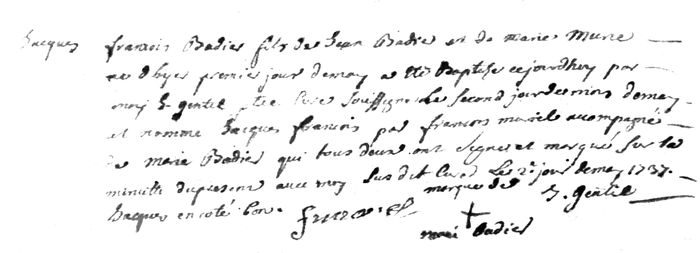 Jacques françois Badier fils de Jean Badier et de marie Mune
ne d hyer premier jour de may a eté Baptise cejourdhuy par
moy h gentil ptre Curé Soussigné Le second jour du mois de may
et nomme Jacques francois par francois acompagné
de marie Badier qui tous deux ont signes et marque sur la
minutte du present avec moy Sus dit Curé Le 2e jour de may 1737.
Jacques en coté bon. marque de h. gentil
marie Badier